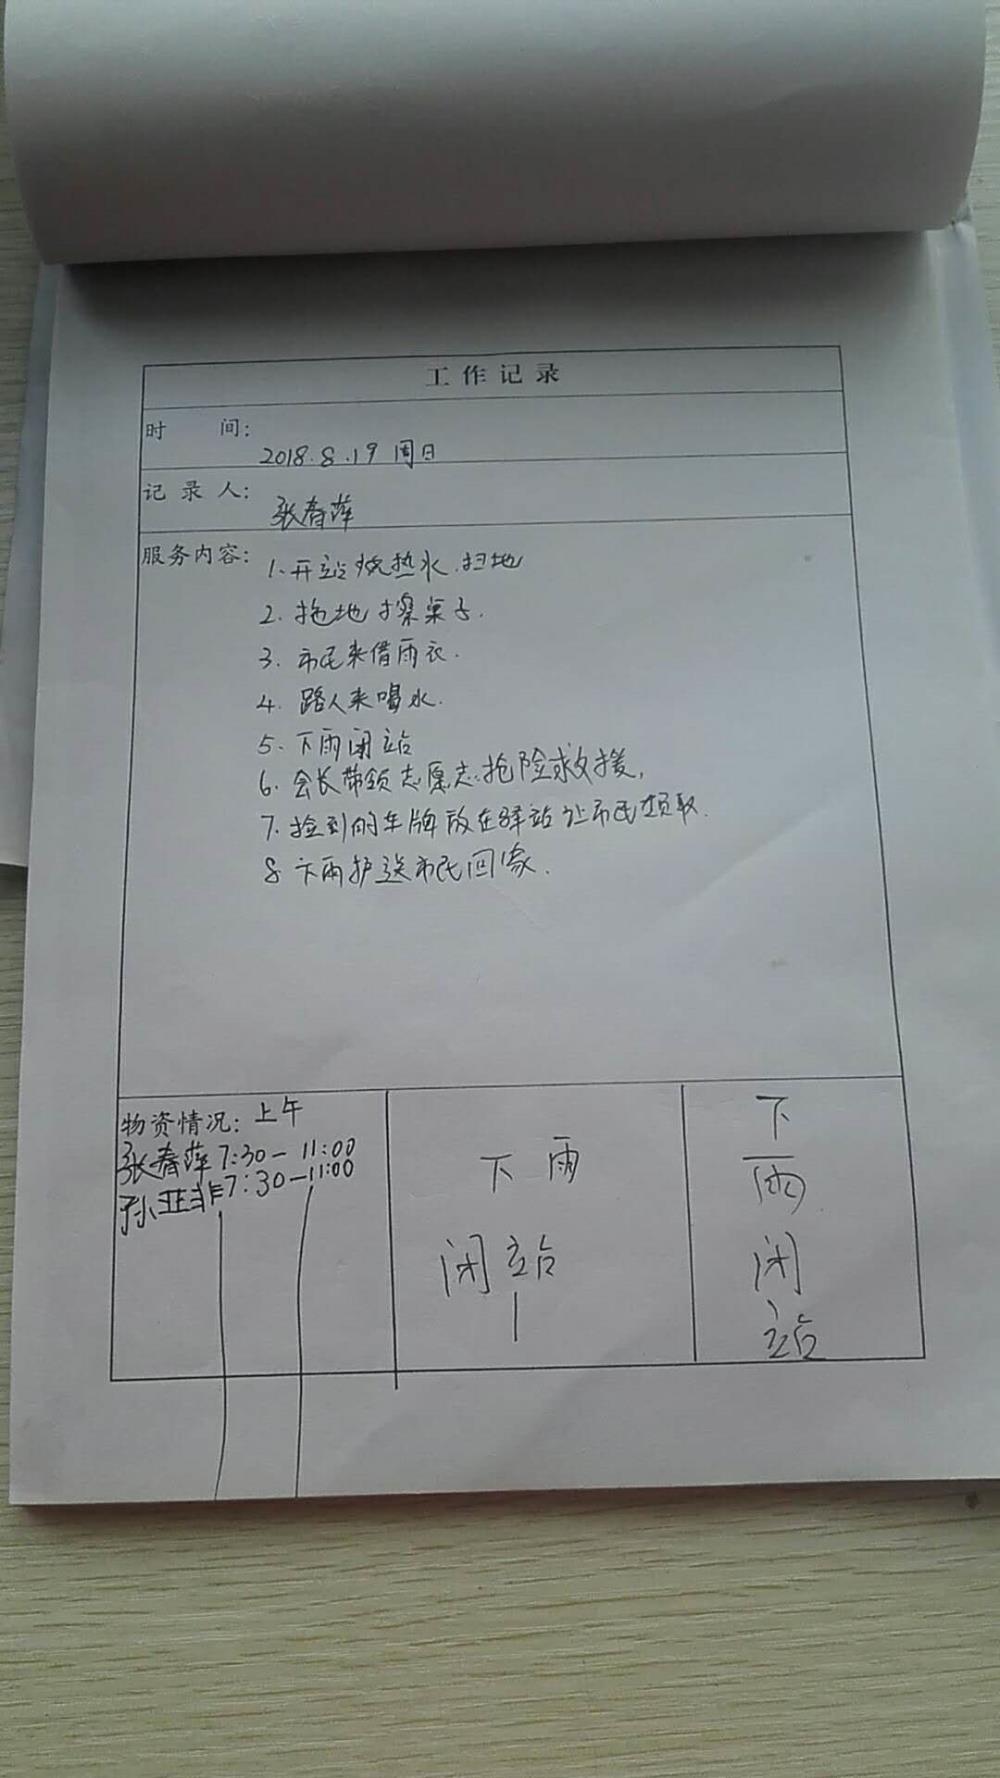 工作记录
时 间:
2018.8.19 周日
记录人:
张春萍
服务内容:
1.开站烧热水.扫地
2.拖地擦桌子.
3.市民来借雨衣.
4.路人来喝水.
5.下雨闭站
6.会长带领志愿志抢险救援,
7.捡到的车牌放在驿站让市民领取.
8 下雨护送市民回家.
物资情况:上午
张春萍7:30-11:00
孙亚非7:30-11:00
下雨
闭站
下
雨
闭
站